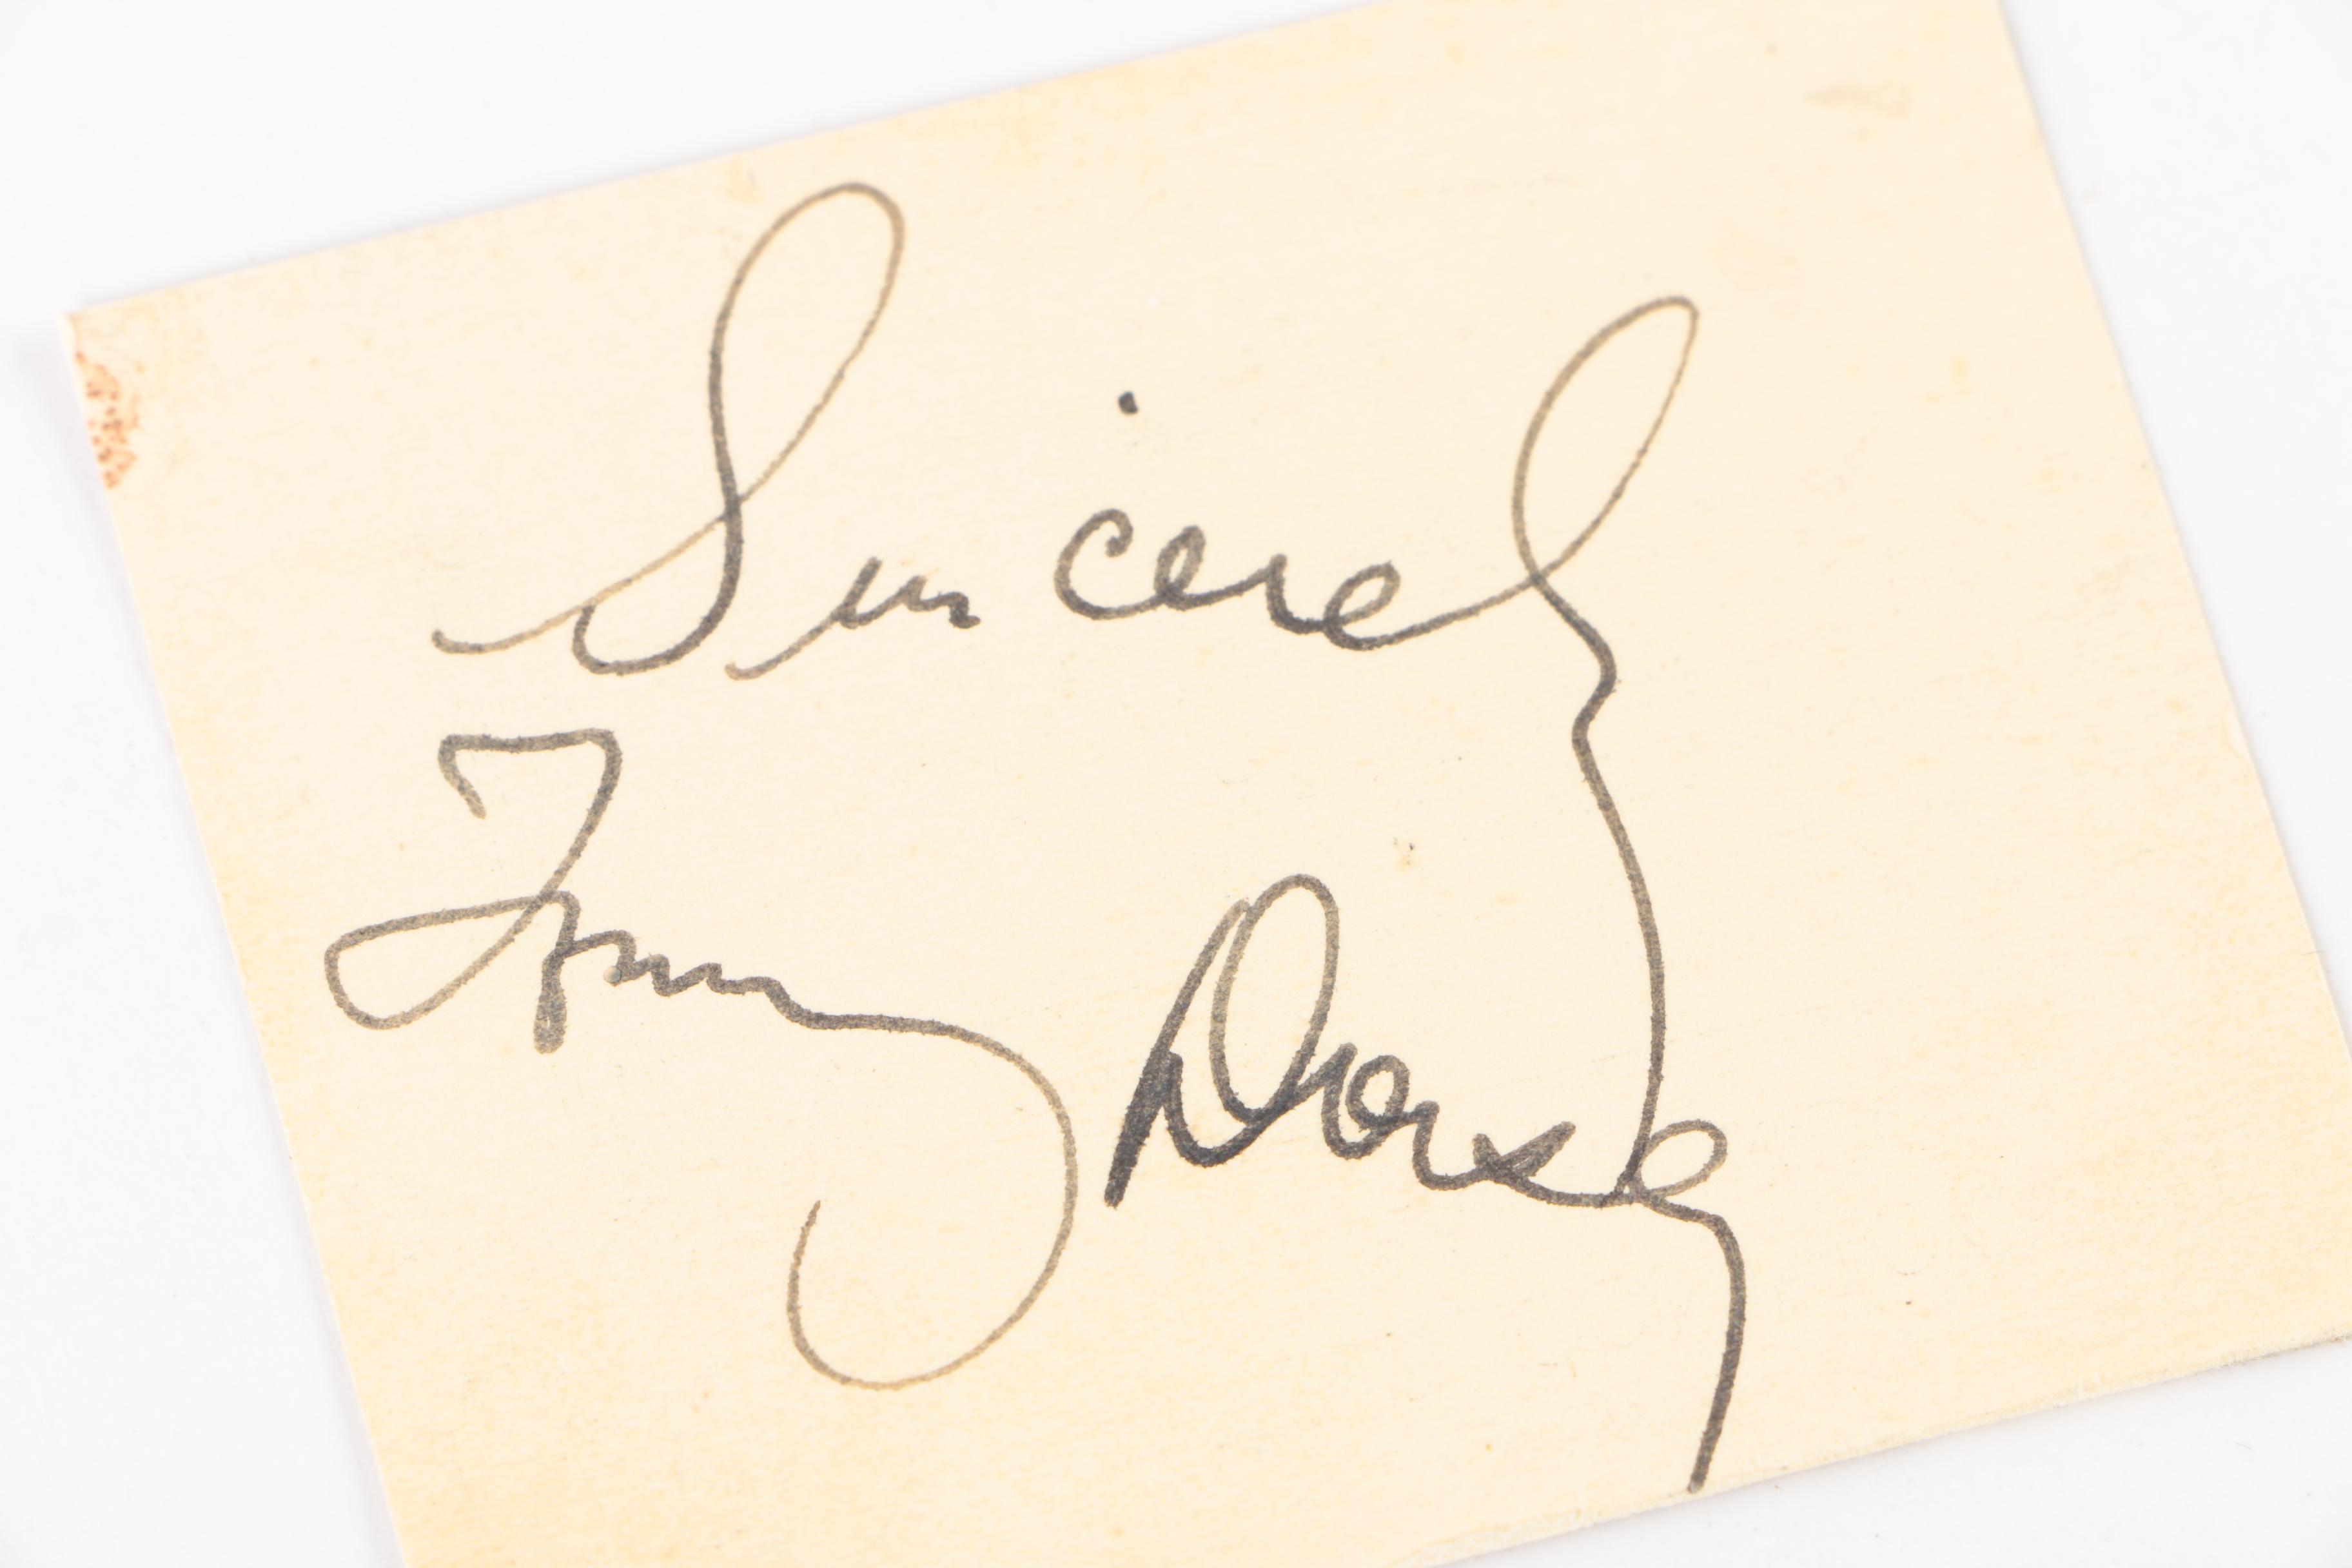 Sincerely
Tommy Dorsey